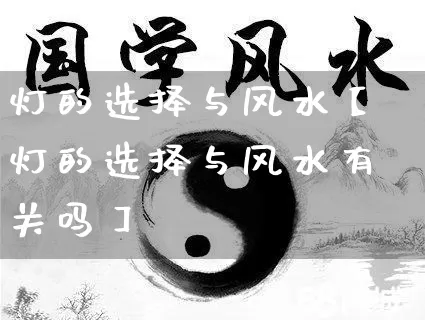 国学风水
灯的选择与风水【
灯的选择与风水有
关吗】